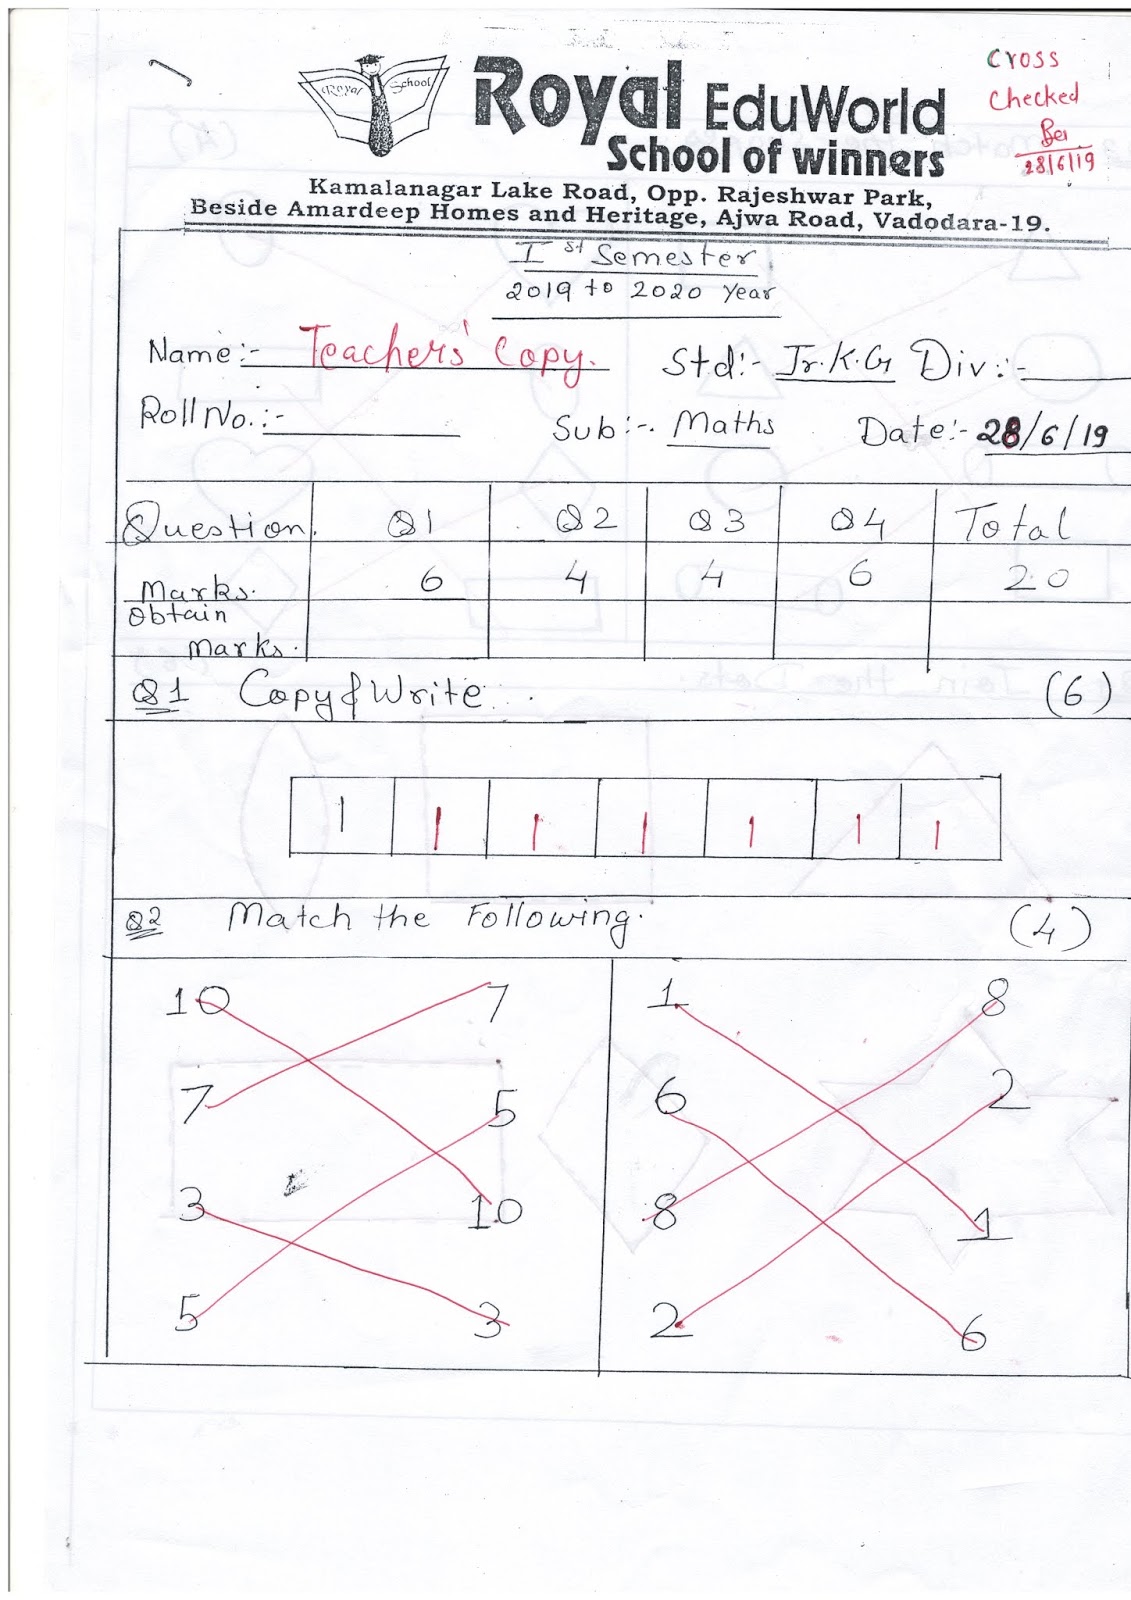 Royal School
Royal EduWorld
School of winners
Cross
Checked
28/6/19
Kamalanagar Lake Road, Opp. Rajeshwar Park,
Beside Amardeep Homes and Heritage, Ajwa Road, Vadodara-19.
Ist Semester
2019 to 2020 Year
Name:- Teachers' Copy. Std:- Jr.K.G Div:-
Roll No.:- Sub:-. Maths Date:- 28/6/19
Question. Q1 Q2 Q3 Q4 Total
Marks. 6 4 4 6 20
Obtain
Marks.
Q1 Copy & Write. (6)
1 1 1 1 1 1 1
Q2 Match the Following. (4)
10 7 1 8
7 5 6 2
3 10 8 1
5 3 2 6